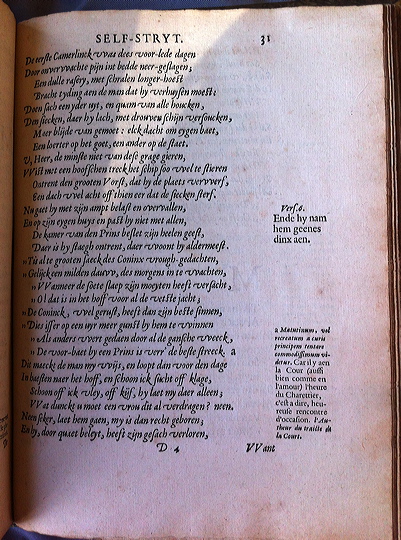 SELF-STRYT. 31
De eerste Camerlinck vvas dees voor-lede dagen
Door onvervvachte pijn int bedde neer-geslagen;
Een dulle rasery, met schralen longer-hoest
Bracht tyding aen de man dat hy verhuysen moest:
Doen sach een yder uyt, en quam van alle houcken,
Den siecken, daer hy lach, met drouven schijn versoucken,
Maer blijde van gemoet: elck dacht om eygen baet,
Een loerter op het goet, een ander op de staet.
V, Heer, de minste niet van dese grage gieren,
VVist met een hoofschen treck het schip soo vvel te stieren
Ontrent den grooten Vorst, dat hy de plaets vervverf,
Een dach vvel acht of thien eer dat de siecken sterf.
Nu gaet hy met zijn ampt belast en overvallen,
En op zijn eygen huys en past hy niet met allen,
De kamer van den Prins beslet zijn heelen geest,
Daer is hy staegh ontrent, daer vvoont hy aldermeest.
„ Tis al te grooten saeck des Coninx vrough-gedachten,
„ Gelijck een milden dauvv, des morgens in te vvachten,
„ VVanneer de soete slaep zijn moeyten heeft versacht,
„ Ol dat is in het hoff voor al de vetste jacht;
„ De Coninck, vvel gerust, heeft dan zijn beste sinnen,
„ Dies isser op een uyr meer gunst by hem te vvinnen
„ Als anders vvert gedaen door al de gansche vveeck,
„ De voor-baet by een Prins is verr' de beste streeck. a
Dit maeckt de man my vvijs, en loopt dan voor den dage
In haesten naer het hoff, en schoon ick sucht off klage,
Schoon off ick vley, off kijf, hy laet my daer alleen;
VVat dunckt u moet een vrou dit al verdragen? neen.
Neen seker, laet hem gaen, my is dan recht geboren;
En hy, door quaet beleyt, heeft zijn gesach verloren,
D 4 VVant
Vers. 6.
Ende hy nam
hem geenes
dinx aen.
a Matutinum, vel
recreatum à curis
principem tentare
commodissimum vi-
detur. Car il y a en
la Cour (aussi
bien comme en
l'amour) l'heure
du Charettier,
c'est a dire, heu-
reuse rencontre
d'occasion. l'Au-
theur du traitte de
la Court.